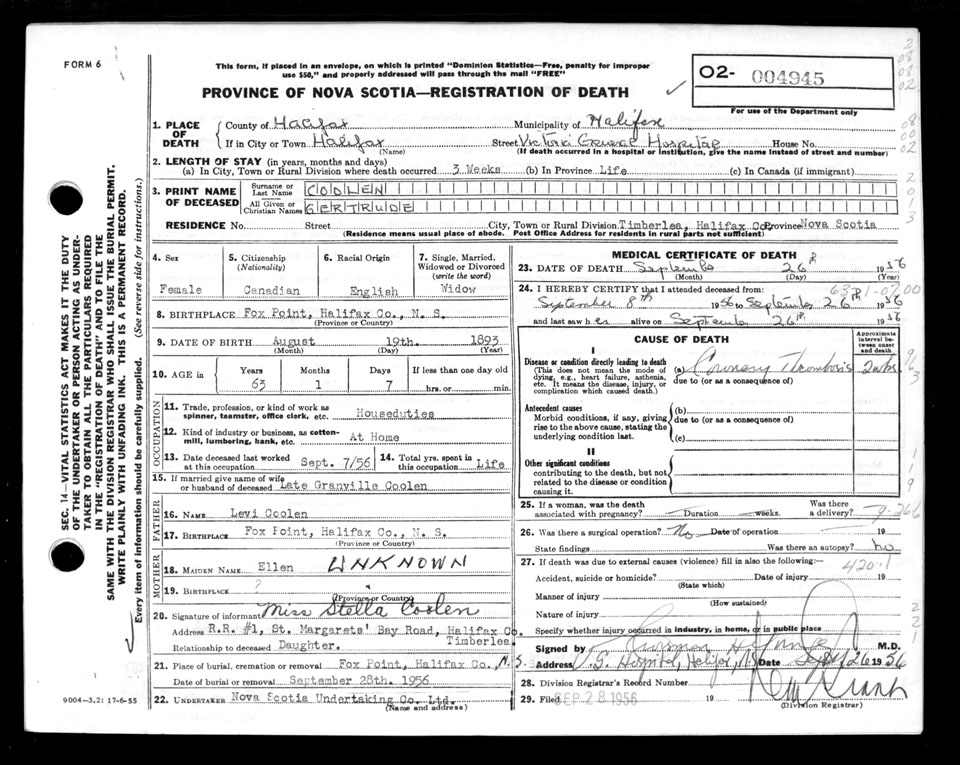 FORM 6
This form, if placed in an envelope, on which is printed "Dominion Statistics—Free, penalty for improper
use $50," and properly addressed will pass through the mail "FREE"
PROVINCE OF NOVA SCOTIA—REGISTRATION OF DEATH
02- 004945
For use of the Department only
1. PLACE OF DEATH
County of Halifax Municipality of Halifax
If in City or Town Halifax Street Victoria General Hospital House No.
(Name) (If death occurred in a hospital or institution, give the name instead of street and number)
2. LENGTH OF STAY (in years, months and days)
(a) In City, Town or Rural Division where death occurred 3 Weeks (b) In Province Life (c) In Canada (if immigrant)
3. PRINT NAME OF DECEASED
Surname or Last Name COOLEN
All Given or Christian Names GERTRUDE
RESIDENCE No. Street City, Town or Rural Division Timberlea, Halifax Co. Province Nova Scotia
(Residence means usual place of abode. Post Office Address for residents in rural parts not sufficient)
4. Sex
Female
5. Citizenship (Nationality)
Canadian
6. Racial Origin
English
7. Single, Married, Widowed or Divorced (write the word)
Widow
8. BIRTHPLACE Fox Point, Halifax Co., N. S.
(Province or Country)
9. DATE OF BIRTH August 19th. 1893
(Month) (Day) (Year)
10. AGE in Years Months Days If less than one day old
63 1 7 hrs. or min.
OCCUPATION
11. Trade, profession, or kind of work as spinner, teamster, office clerk, etc. Houseduties
12. Kind of industry or business, as cotton-mill, lumbering, bank, etc. At Home
13. Date deceased last worked at this occupation Sept. 7/56
14. Total yrs. spent in this occupation Life
15. If married give name of wife or husband of deceased Late Granville Coolen
FATHER
16. NAME Levi Coolen
17. BIRTHPLACE Fox Point, Halifax Co., N. S.
(Province or Country)
MOTHER
18. MAIDEN NAME Ellen UNKNOWN
19. BIRTHPLACE ?
(Province or Country)
20. Signature of informant Miss Stella Coolen
Address R.R. #1, St. Margarets' Bay Road, Halifax Co.
Timberlea.
Relationship to deceased Daughter.
21. Place of burial, cremation or removal Fox Point, Halifax Co., N. S.
Date of burial or removal September 28th. 1956
22. UNDERTAKER Nova Scotia Undertaking Co. Ltd.
(Name and address)
MEDICAL CERTIFICATE OF DEATH
23. DATE OF DEATH September 26th 1956
(Month) (Day) (Year)
24. I HEREBY CERTIFY that I attended deceased from:
September 8th 1956 to September 26th 1956
and last saw her alive on September 26th 1956
CAUSE OF DEATH
Approximate interval between onset and death
I
Disease or condition directly leading to death
(This does not mean the mode of dying, e.g., heart failure, asthenia, etc. It means the disease, injury, or complication which caused death.)
(a) Coronary Thrombosis 2 wks
due to (or as a consequence of)
Antecedent causes
Morbid conditions, if any, giving rise to the above cause, stating the underlying condition last.
(b)
due to (or as a consequence of)
(c)
II
Other significant conditions
contributing to the death, but not related to the disease or condition causing it.
25. If a woman, was the death associated with pregnancy? Duration weeks. Was there a delivery?
26. Was there a surgical operation? No Date of operation 19
State findings Was there an autopsy? No
27. If death was due to external causes (violence) fill in also the following:
420.1
Accident, suicide or homicide? Date of injury 19
(State which)
Manner of injury
(How sustained)
Nature of injury
Specify whether injury occurred in industry, in home, or in public place
Signed by M.D.
Address V. G. Hospital, Halifax, N.S. Date Sept 26 1956
28. Division Registrar's Record Number
29. Filed SEP 28 1956 19
(Division Registrar)
9004—3.2: 17-6-55
SEC. 14—VITAL STATISTICS ACT MAKES IT THE DUTY
OF THE UNDERTAKER OR PERSON ACTING AS UNDER-
TAKER TO OBTAIN ALL THE PARTICULARS REQUIRED
IN THE "REGISTRATION OF DEATH" AND TO FILE THE
SAME WITH THE DIVISION REGISTRAR WHO SHALL ISSUE THE BURIAL PERMIT.
WRITE PLAINLY WITH UNFADING INK. THIS IS A PERMANENT RECORD.
Every item of information should be carefully supplied. (See reverse side for instructions.)